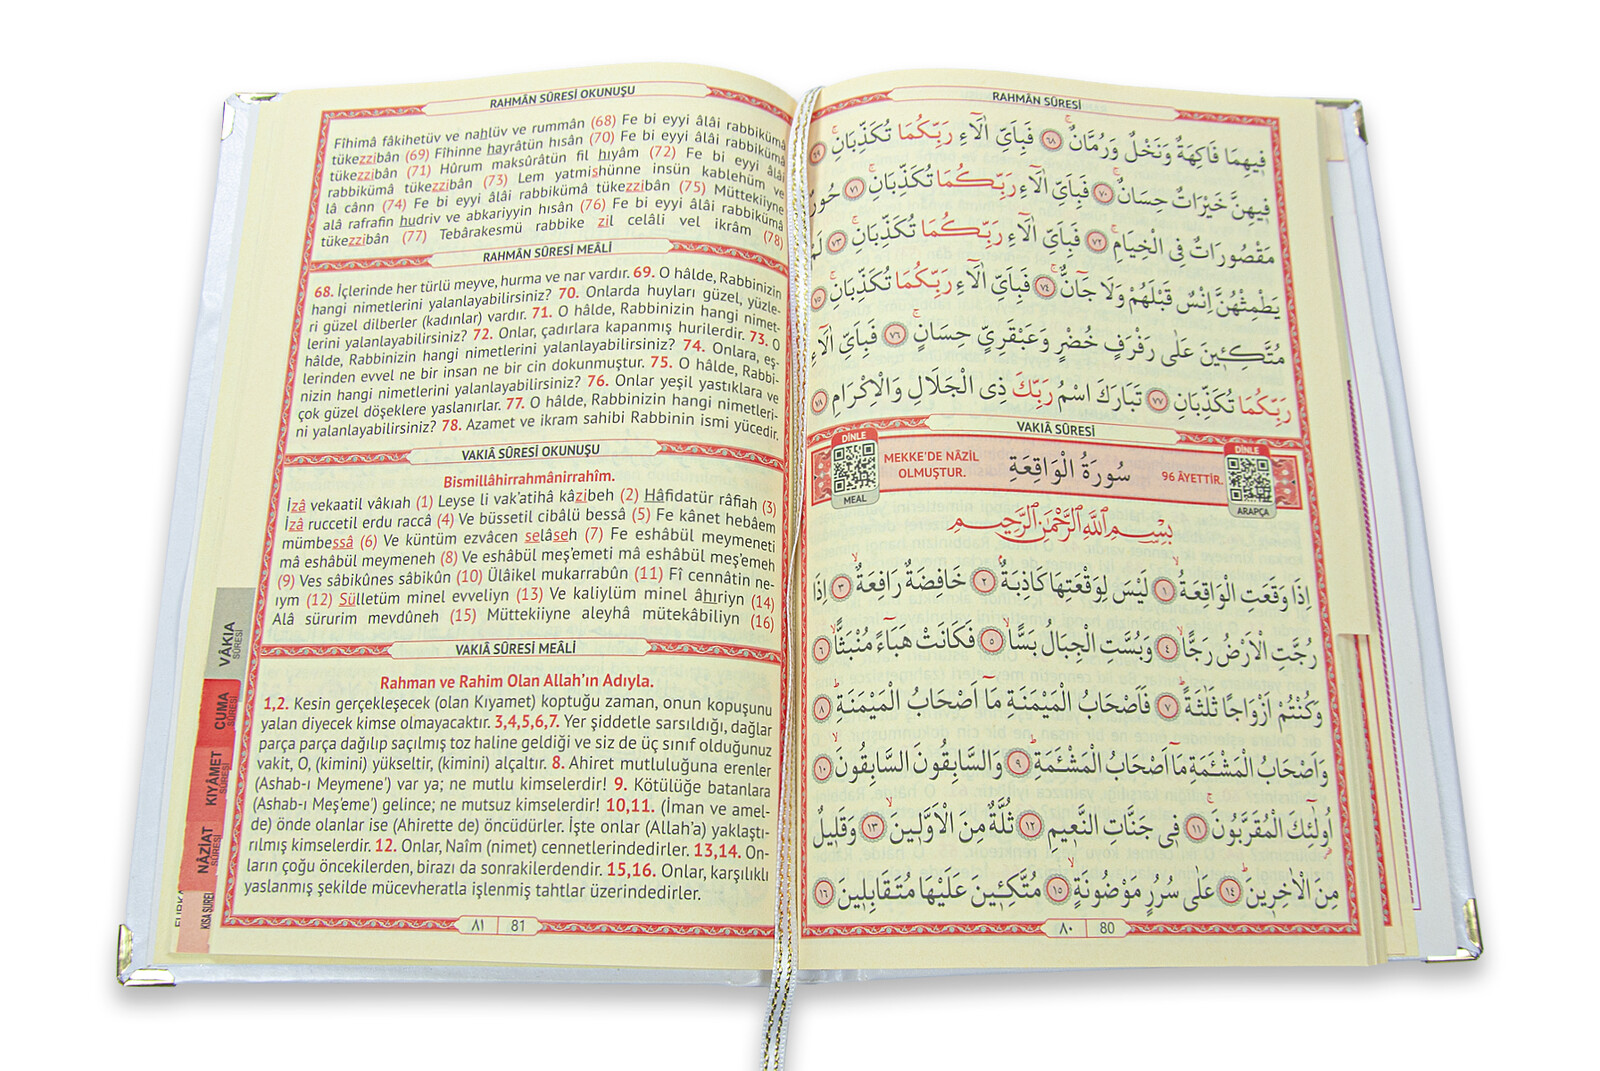 RAHMÂN SÛRESİ OKUNUŞU
Fîhimâ fâkihetüv ve nahlüv ve rummân (68) Fe bi eyyi âlâi rabbikümâ
tükezzibân (69) Fîhinne hayrâtün hısân (70) Fe bi eyyi âlâi rabbikümâ
tükezzibân (71) Hûrum maksûrâtün fil hıyâm (72) Fe bi eyyi âlâi
rabbikümâ tükezzibân (73) Lem yatmishünne insün kablehüm ve
lâ cânn (74) Fe bi eyyi âlâi rabbikümâ tükezzibân (75) Müttekiiyne
alâ rafrafin hudriv ve abkariyyin hısân (76) Fe bi eyyi âlâi rabbikümâ
tükezzibân (77) Tebârakesmü rabbike zil celâli vel ikrâm (78)
RAHMÂN SÛRESİ MEÂLİ
68. İçlerinde her türlü meyve, hurma ve nar vardır. 69. O hâlde, Rabbinizin
hangi nimetlerini yalanlayabilirsiniz? 70. Onlarda huyları güzel, yüzle-
ri güzel dilberler (kadınlar) vardır. 71. O hâlde, Rabbinizin hangi nimet-
lerini yalanlayabilirsiniz? 72. Onlar, çadırlara kapanmış hurilerdir. 73. O
hâlde, Rabbinizin hangi nimetlerini yalanlayabilirsiniz? 74. Onlara, eş-
lerinden evvel ne bir insan ne bir cin dokunmuştur. 75. O hâlde, Rabbi-
nizin hangi nimetlerini yalanlayabilirsiniz? 76. Onlar yeşil yastıklara ve
çok güzel döşeklere yaslanırlar. 77. O hâlde, Rabbinizin hangi nimetleri-
ni yalanlayabilirsiniz? 78. Azamet ve ikram sahibi Rabbinin ismi yücedir.
VAKIÂ SÛRESİ OKUNUŞU
Bismillâhirrahmânirrahîm.
İzâ vekaatil vâkıah (1) Leyse li vak'atihâ kâzibeh (2) Hâfidatür râfiah (3)
İzâ ruccetil erdu raccâ (4) Ve büssetil cibâlü bessâ (5) Fe kânet hebâem
mümbessâ (6) Ve küntüm ezvâcen selâseh (7) Fe eshâbül meymeneti
mâ eshâbül meymeneh (8) Ve eshâbül meş'emeti mâ eshâbül meş'emeh
(9) Ves sâbikûnes sâbikûn (10) Ülâikel mukarrabûn (11) Fî cennâtin ne-
ıym (12) Sülletüm minel evveliyn (13) Ve kaliylüm minel âhıriyn (14)
Alâ sürurim mevdûneh (15) Müttekiiyne aleyhâ mütekâbiliyn (16)
VAKIÂ SÛRESİ MEÂLİ
Rahman ve Rahim Olan Allah'ın Adıyla.
1,2. Kesin gerçekleşecek (olan Kıyamet) koptuğu zaman, onun kopuşunu
yalan diyecek kimse olmayacaktır. 3,4,5,6,7. Yer şiddetle sarsıldığı, dağlar
parça parça dağılıp saçılmış toz haline geldiği ve siz de üç sınıf olduğunuz
vakit, O, (kimini) yükseltir, (kimini) alçaltır. 8. Ahiret mutluluğuna erenler
(Ashab-ı Meymene') var ya; ne mutlu kimselerdir! 9. Kötülüğe batanlara
(Ashab-ı Meş'eme') gelince; ne mutsuz kimselerdir! 10,11. (İman ve amel-
de) önde olanlar ise (Ahirette de) öncüdürler. İşte onlar (Allah'a) yaklaştı-
rılmış kimselerdir. 12. Onlar, Naîm (nimet) cennetlerindedirler. 13,14. On-
ların çoğu öncekilerden, birazı da sonrakilerdendir. 15,16. Onlar, karşılıklı
yaslanmış şekilde mücevheratla işlenmiş tahtlar üzerindedirler.
٨١ 81
VÂKIA
SÛRESİ
CUMA
SÛRESİ
KIYÂMET
SÛRESİ
NÂZİAT
SÛRESİ
KISA SURELER
RAHMÂN SÛRESİ
فِيهِمَا فَاكِهَةٌ وَنَخْلٌ وَرُمَّانٌۚ ٦٨ فَبِاَيِّ اٰلَٓاءِ رَبِّكُمَا تُكَذِّبَانِۚ ٦٩
فِيهِنَّ خَيْرَاتٌ حِسَانٌۚ ٧٠ فَبِاَيِّ اٰلَٓاءِ رَبِّكُمَا تُكَذِّبَانِۚ ٧١ حُورٌ
مَقْصُورَاتٌ فِى الْخِيَامِۚ ٧٢ فَبِاَيِّ اٰلَٓاءِ رَبِّكُمَا تُكَذِّبَانِۚ ٧٣ لَمْ
يَطْمِثْهُنَّ اِنْسٌ قَبْلَهُمْ وَلَا جَٓانٌّۚ ٧٤ فَبِاَيِّ اٰلَٓاءِ رَبِّكُمَا تُكَذِّبَانِۚ ٧٥
مُتَّكِـ۪ٔينَ عَلٰى رَفْرَفٍ خُضْرٍ وَعَبْقَرِيٍّ حِسَانٍۚ ٧٦ فَبِاَيِّ اٰلَٓاءِ
رَبِّكُمَا تُكَذِّبَانِ ٧٧ تَبَارَكَ اسْمُ رَبِّكَ ذِى الْجَلَالِ وَالْاِكْرَامِ ٧٨
VAKIÂ SÛRESİ
DİNLE
MEAL
MEKKE'DE NÂZİL
OLMUŞTUR.
سُورَةُ الْوَاقِعَةِ
96 ÂYETTİR.
DİNLE
ARAPÇA
بِسْمِ اللّٰهِ الرَّحْمٰنِ الرَّحِيمِ
اِذَا وَقَعَتِ الْوَاقِعَةُۙ ١ لَيْسَ لِوَقْعَتِهَا كَاذِبَةٌۘ ٢ خَافِضَةٌ رَافِعَةٌۙ ٣ اِذَا
رُجَّتِ الْاَرْضُ رَجًّاۙ ٤ وَبُسَّتِ الْجِبَالُ بَسًّاۙ ٥ فَكَانَتْ هَبَٓاءً مُنْبَثًّاۙ ٦
وَكُنْتُمْ اَزْوَاجًا ثَلٰثَةًۜ ٧ فَاَصْحَابُ الْمَيْمَنَةِ مَٓا اَصْحَابُ الْمَيْمَنَةِۜ ٨
وَاَصْحَابُ الْمَشْـَٔمَةِ مَٓا اَصْحَابُ الْمَشْـَٔمَةِۜ ٩ وَالسَّابِقُونَ السَّابِقُونَۙ ١٠
اُو۬لٰٓئِكَ الْمُقَرَّبُونَۚ ١١ فِى جَنَّاتِ النَّعِيمِ ١٢ ثُلَّةٌ مِنَ الْاَوَّلِينَۙ ١٣ وَقَلِيلٌ
مِنَ الْاٰخِرِينَۜ ١٤ عَلٰى سُرُرٍ مَوْضُونَةٍۙ ١٥ مُتَّكِـ۪ٔينَ عَلَيْهَا مُتَقَابِلِينَ ١٦
٨٠ 80